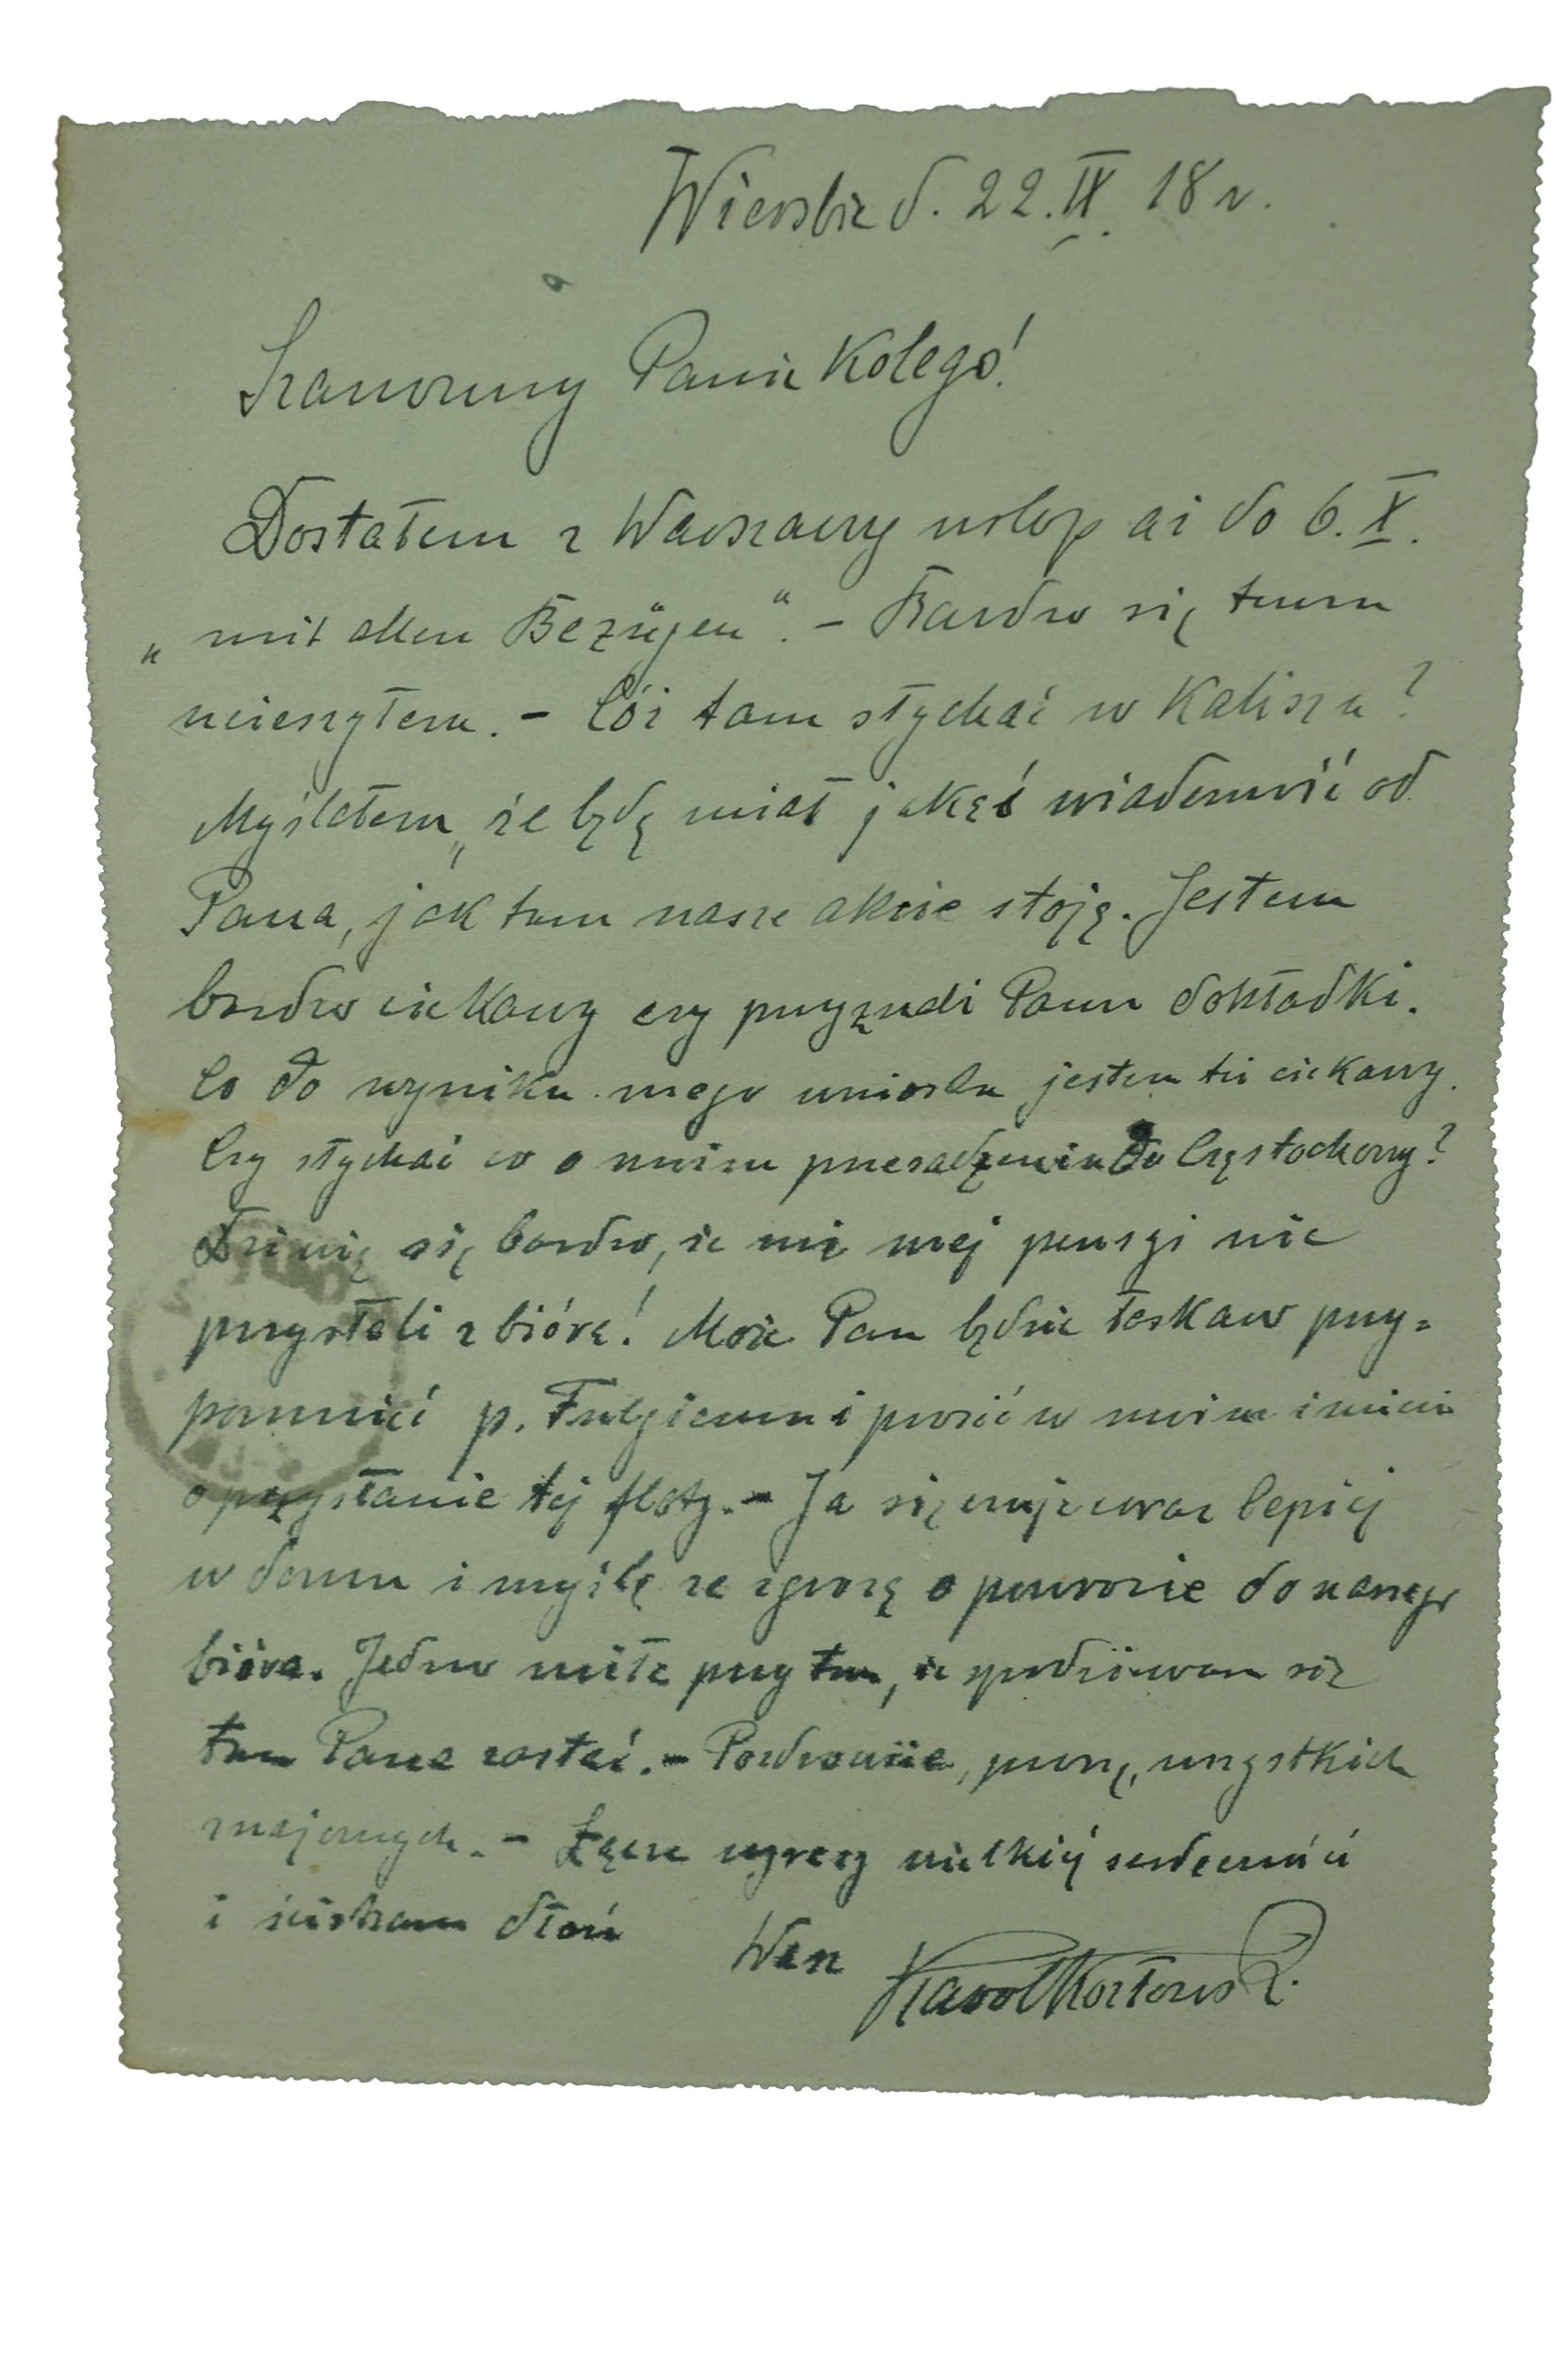 Wierzbie d. 22.IX. 18 r.
Szanowny Panie Kolego!
Dostałem z Warszawy urlop aż do 6.X.
„mit allen Bezügen“. – Bardzo się temu
ucieszyłem. – Cóż tam słychać w Kaliszu?
Myślałem, że będę miał jakąś wiadomość od
Pana, jak tam nasze akcie stoją. Jestem
bardzo ciekawy czy przyznali Panu dokładki.
Co do wyniku mego wniosku jestem też ciekawy.
Czy słychać co o moim przesadzeniu do Częstochowy?
Dziwię się bardzo, że mi mej pensyi nie
przysłali z bióra! Może Pan będzie łaskaw przy=
pomnieć p. i prosić w moim imieniu
o przysłanie tej floty. – Ja się czuję coraz lepiej
w domu i myślę ze zgrozą o powrocie do naszego
bióra. Jedno miłe przy tem, że spodziewam się
tam Pana zastać. – Pozdrowić, proszę, wszystkich
znajomych. – Łączę wyrazy wielkiej serdeczności
i ściskam dłoń Wasz Karol Kozłowski